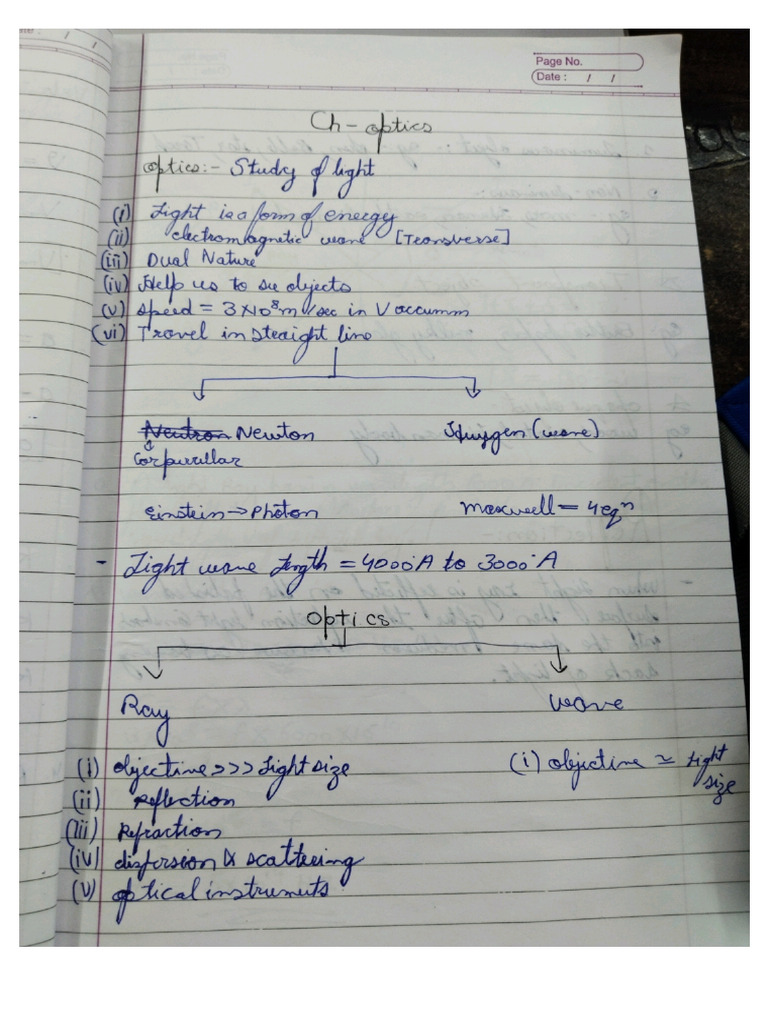 Page No.
Date : / /
Ch - optics
optics:- Study of light
(i) Light is a form of energy
(ii) electromagnetic wave [Transverse]
(iii) Dual Nature
(iv) Help us to see objects
(v) speed = 3×10⁸m/sec in Vaccumm
(vi) Travel in straight line
Neutron Newton
Huygen (wave)
Corpucullar
Einstein → Photon
maxwell = 4eqⁿ
- Light wave length = 4000°A to 3000°A
Optics
Ray
wave
(i) objective >>> Light size
(i) objective ≃ Light size
(ii) reflection
(iii) Refraction
(iv) dispersion & scattering
(v) optical instruments